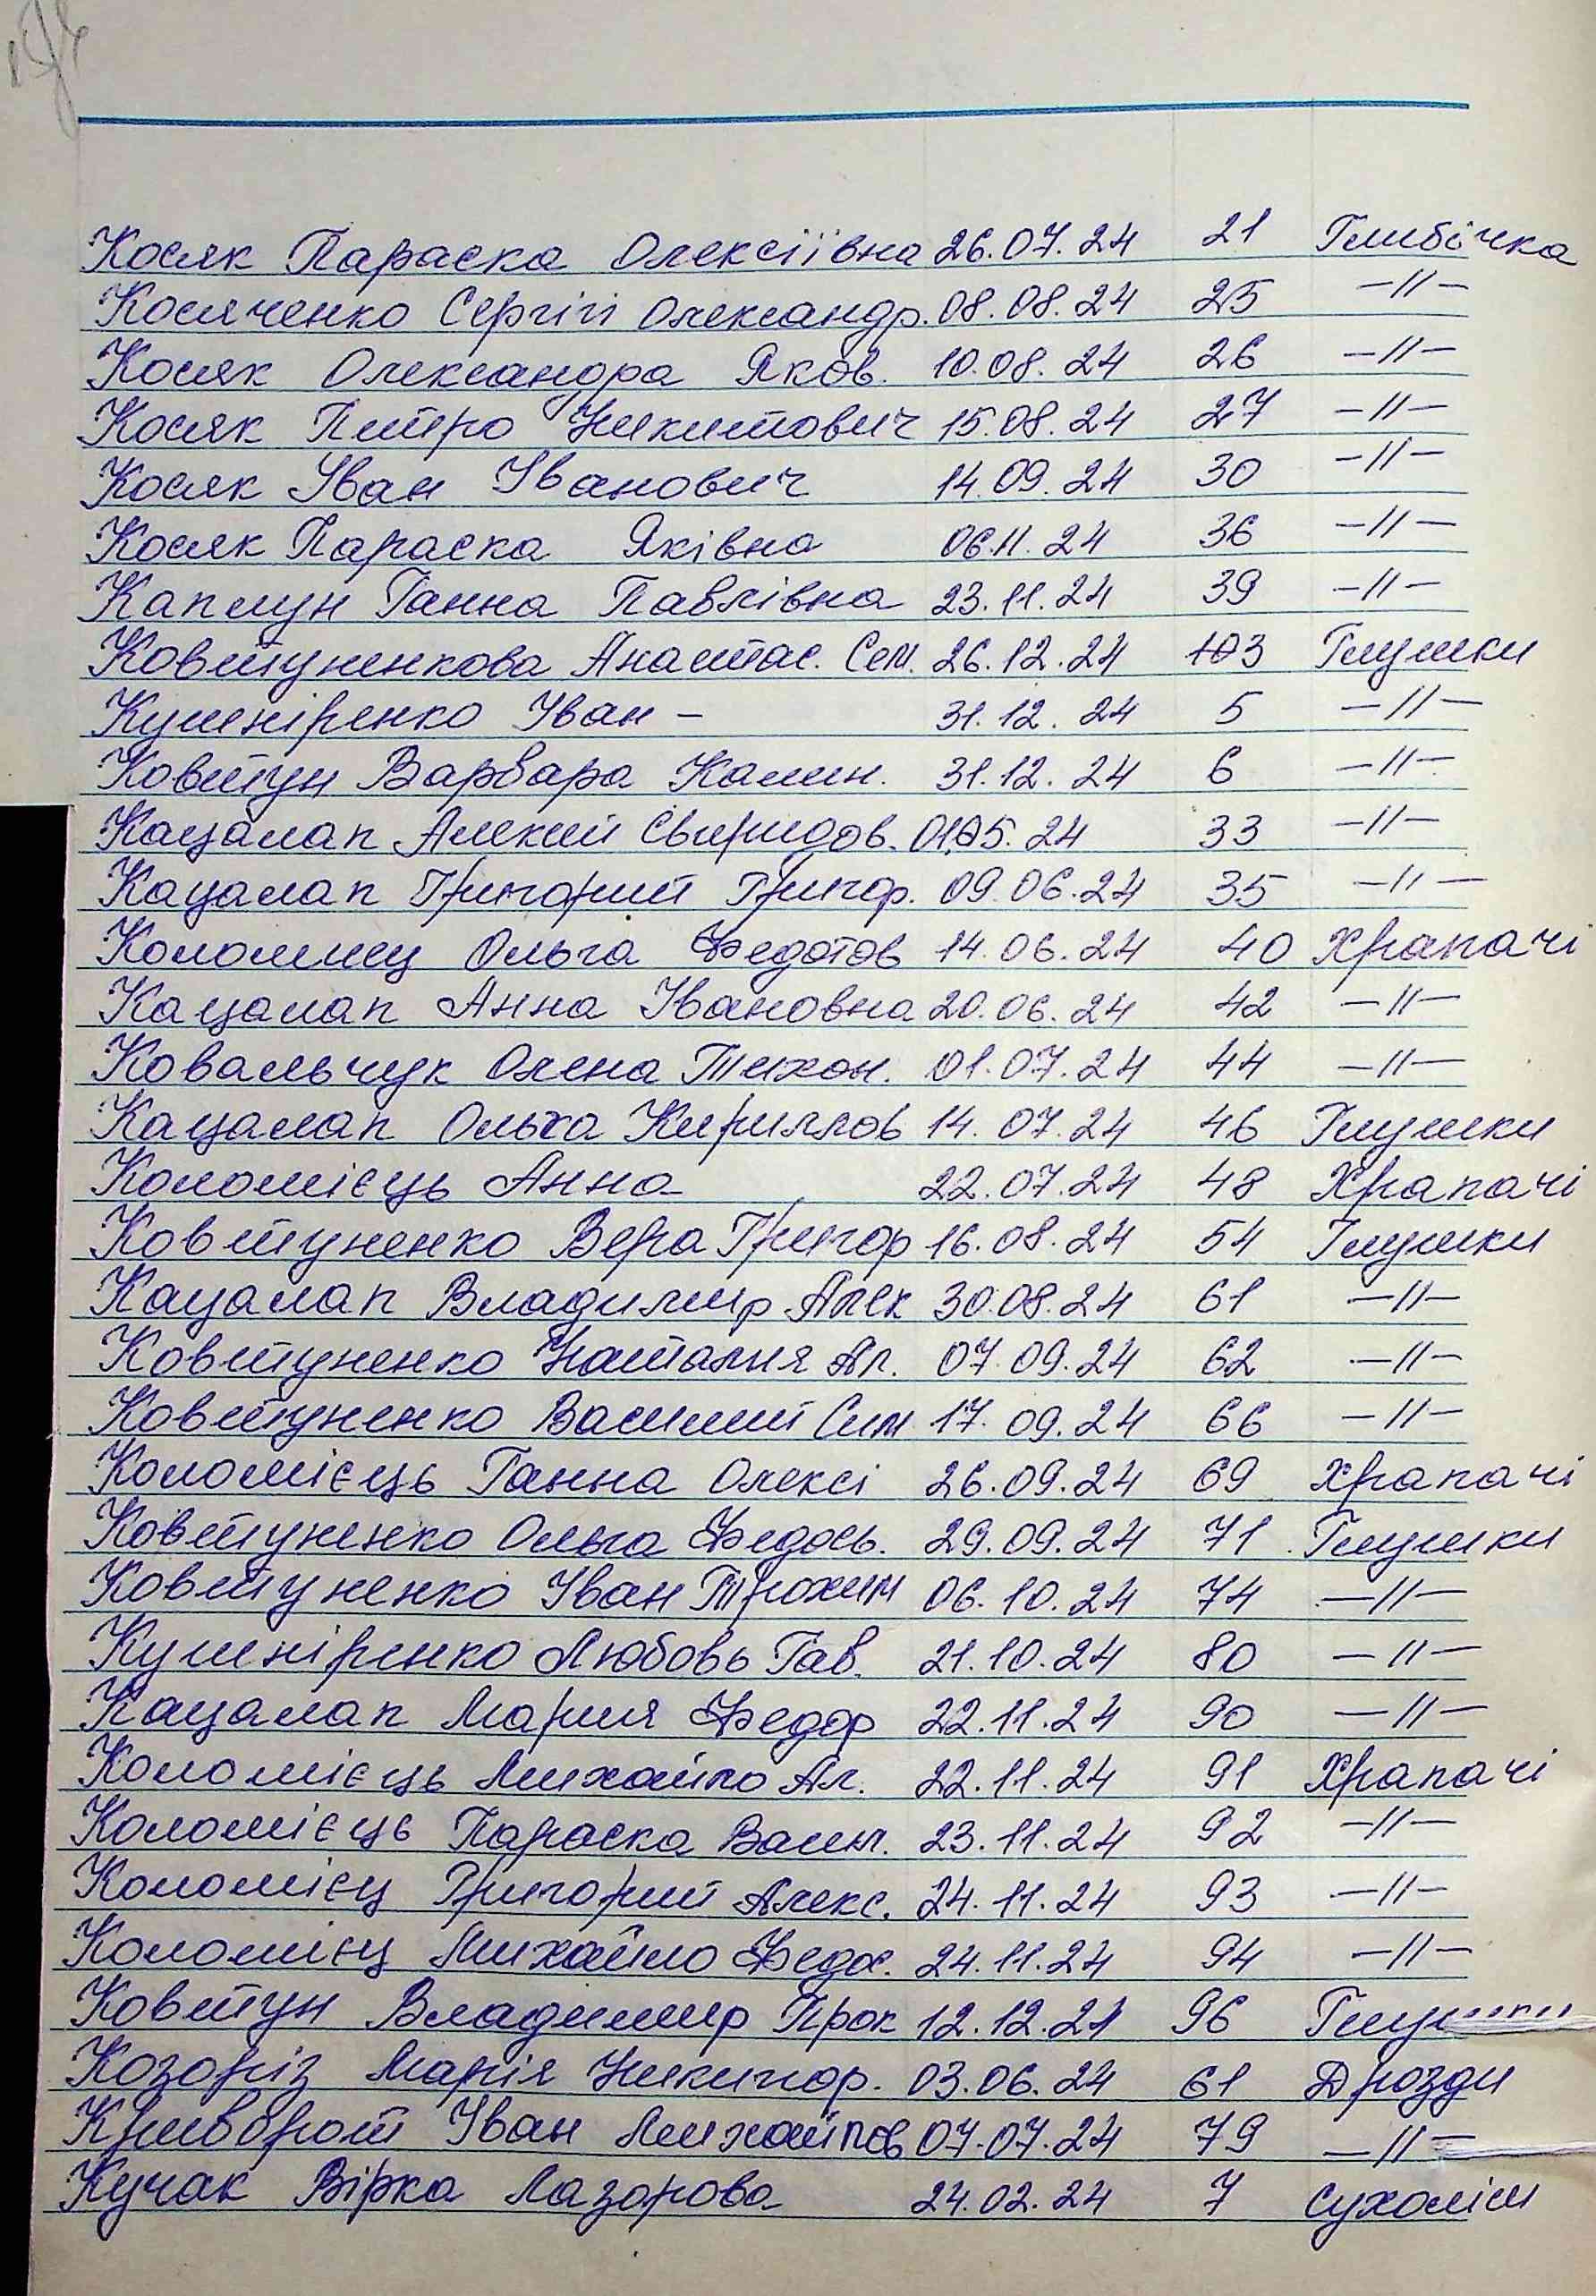 Косяк Параска Олексіївна 26.07.24 21 Глибічка
Косяченко Сергій Олександр. 08.08.24 25 -//-
Косяк Олександра Яков. 10.08.24 26 -//-
Косяк Питро Никитович 15.08.24 27 -//-
Косяк Іван Іванович 14.09.24 30 -//-
Косяк Параска Яківна 06.11.24 36 -//-
Каплун Ганна Павлівна 23.11.24 39 -//-
Ковтуненкова Анастас. Сем. 26.12.24 103 Глушки
Кушніренко Іван - 31.12.24 5 -//-
Ковтун Варвара Калин. 31.12.24 6 -//-
Кацалап Алексий Свиридов. 01.05.24 33 -//-
Кацалап Григорий Григор. 09.06.24 35 -//-
Коломиец Ольга Федотов 14.06.24 40 Храпачі
Кацалап Анна Івановна 20.06.24 42 -//-
Ковальчук Олена Тихон. 01.07.24 44 -//-
Кацалап Ольха Кириллов 14.07.24 46 Глушки
Коломієць Анна 22.07.24 48 Храпачі
Ковтуненко Вера Григор 16.08.24 54 Глушки
Кацалап Владимир Алек 30.08.24 61 -//-
Ковтуненко Наталия Ал. 07.09.24 62 -//-
Ковтуненко Василий Сим 17.09.24 66 -//-
Коломієць Ганна Олексі 26.09.24 69 Храпачі
Ковтуненко Ольга Федось. 29.09.24 71 Глушки
Ковтуненко Іван Трохим 06.10.24 74 -//-
Кушніренко Любовь Гав. 21.10.24 80 -//-
Кацалап Мария Федор 22.11.24 90 -//-
Коломієць Михайло Ал. 22.11.24 91 Храпачі
Коломієць Параска Васил. 23.11.24 92 -//-
Коломієц Григорий Алекс. 24.11.24 93 -//-
Коломієц Михайло Федос. 24.11.24 94 -//-
Ковтун Владимир Прок 12.12.24 96 Глушки
Козоріз Марія Никифор. 03.06.24 61 Дрозди
Криворот Іван Михайлов 07.07.24 79 -//-
Кучак Вірка Лазорова 24.02.24 7 Сухоліси